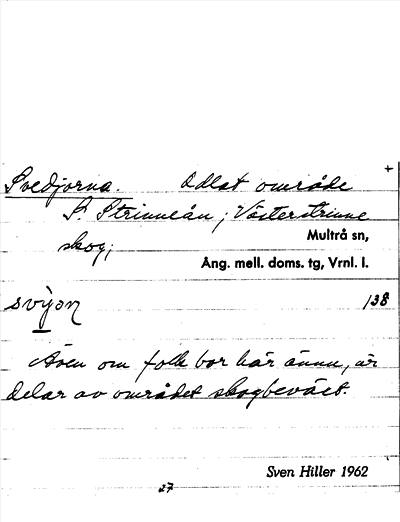 Svedjorna. Odlat område
S. Strinneån; Västerstrinne
skog;
Multrå sn,
Ång. mell. doms. tg, Vrnl. l.
138
Även om folk bor här ännu, är
delar av området skogbeväxt.
Sven Hiller 1962
27